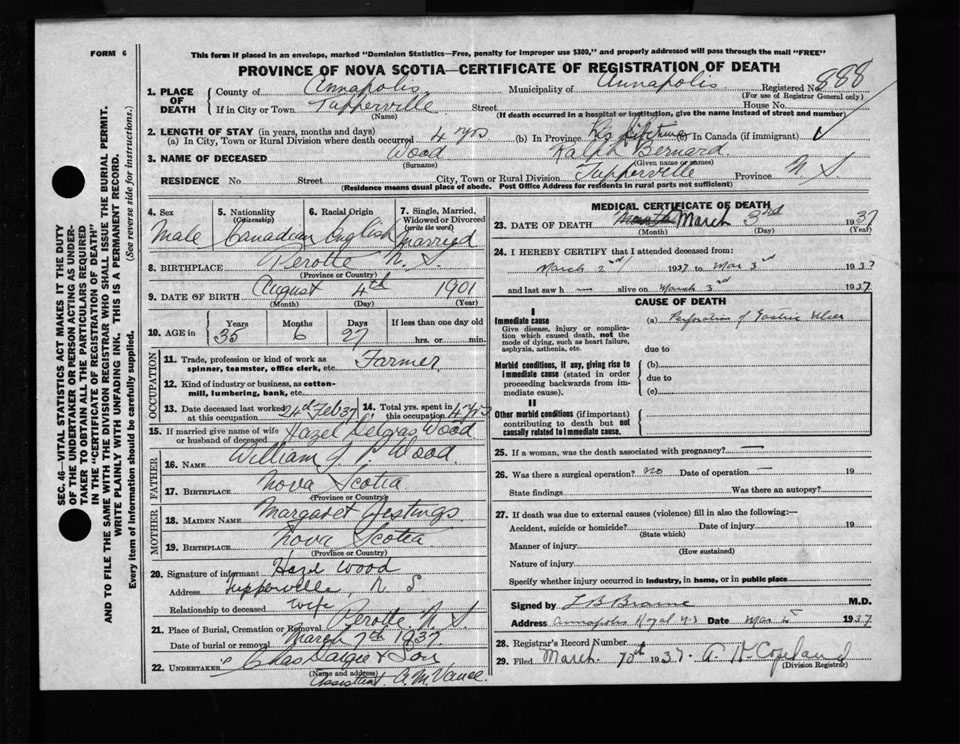 FORM 6
This form if placed in an envelope, marked "Dominion Statistics—Free, penalty for improper use $300," and properly addressed will pass through the mail "FREE"
PROVINCE OF NOVA SCOTIA—CERTIFICATE OF REGISTRATION OF DEATH
SEC. 46—VITAL STATISTICS ACT MAKES IT THE DUTY
OF THE UNDERTAKER OR PERSON ACTING AS UNDER-
TAKER TO OBTAIN ALL THE PARTICULARS REQUIRED
IN THE "CERTIFICATE OF REGISTRATION OF DEATH"
AND TO FILE THE SAME WITH THE DIVISION REGISTRAR WHO SHALL ISSUE THE BURIAL PERMIT.
WRITE PLAINLY WITH UNFADING INK. THIS IS A PERMANENT RECORD.
Every item of information should be carefully supplied. (See reverse side for instructions.)
1. PLACE OF DEATH
County of Annapolis Municipality of Annapolis Registered No. 888
(For use of Registrar General only)
If in City or Town Tupperville Street House No.
(Name) (If death occurred in a hospital or institution, give the name instead of street and number)
2. LENGTH OF STAY (in years, months and days)
(a) In City, Town or Rural Division where death occurred 4 yrs (b) In Province His lifetime (c) In Canada (if immigrant)
3. NAME OF DECEASED Wood Ralph Bernard
(Surname) (Given name or names)
RESIDENCE No Street City, Town or Rural Division Tupperville Province N. S
(Residence means usual place of abode. Post Office Address for residents in rural parts not sufficient)
4. Sex 5. Nationality (Citizenship) 6. Racial Origin 7. Single, Married, Widowed or Divorced (write the word)
Male Canadian English Married
8. BIRTHPLACE Perotte N. S.
(Province or Country)
9. DATE OF BIRTH August 4th 1901
(Month) (Day) (Year)
10. AGE in Years Months Days If less than one day old
35 6 27 hrs. or min.
OCCUPATION
11. Trade, profession or kind of work as spinner, teamster, office clerk, etc. Farmer
12. Kind of industry or business, as cotton-mill, lumbering, bank, etc.
13. Date deceased last worked at this occupation 24th Feb 37 14. Total yrs. spent in this occupation 4 yrs
15. If married give name of wife or husband of deceased Hazel Wood
FATHER
16. NAME William J. P. Wood
17. BIRTHPLACE Nova Scotia
(Province or Country)
MOTHER
18. MAIDEN NAME Margaret
19. BIRTHPLACE Nova Scotia
(Province or Country)
20. Signature of informant Hazel Wood
Address Tupperville, N S.
Relationship to deceased Wife
21. Place of Burial, Cremation or Removal Perotte N. S
Date of burial or removal March 7th 1937
22. UNDERTAKER Chas & Son
(Name and address)
Assistant. C. M. Vance.
MEDICAL CERTIFICATE OF DEATH
23. DATE OF DEATH March 3rd 1937
(Month) (Day) (Year)
24. I HEREBY CERTIFY that I attended deceased from:
March 2nd 1937 to Mar 3rd 1937
and last saw h alive on March 3rd 1937
CAUSE OF DEATH
I
Immediate cause (a) Perforation of Gastric Ulcer
Give disease, injury or complica-
tion which caused death, not the
mode of dying, such as heart failure,
asphyxia, asthenia, etc. due to
Morbid conditions, if any, giving rise to (b)
immediate cause (stated in order due to
proceeding backwards from im- (c)
mediate cause).
II
Other morbid conditions (if important)
contributing to death but not
causally related to immediate cause.
25. If a woman, was the death associated with pregnancy? —
26. Was there a surgical operation? no Date of operation — 19
State findings Was there an autopsy?
27. If death was due to external causes (violence) fill in also the following:—
Accident, suicide or homicide? Date of injury 19
(State which)
Manner of injury
(How sustained)
Nature of injury
Specify whether injury occurred in industry, in home, or in public place
Signed by L B Braine M.D.
Address Annapolis Royal N.S Date Mar 5 1937
28. Registrar's Record Number
29. Filed March 10th 1937 A. W. Copeland
(Division Registrar)